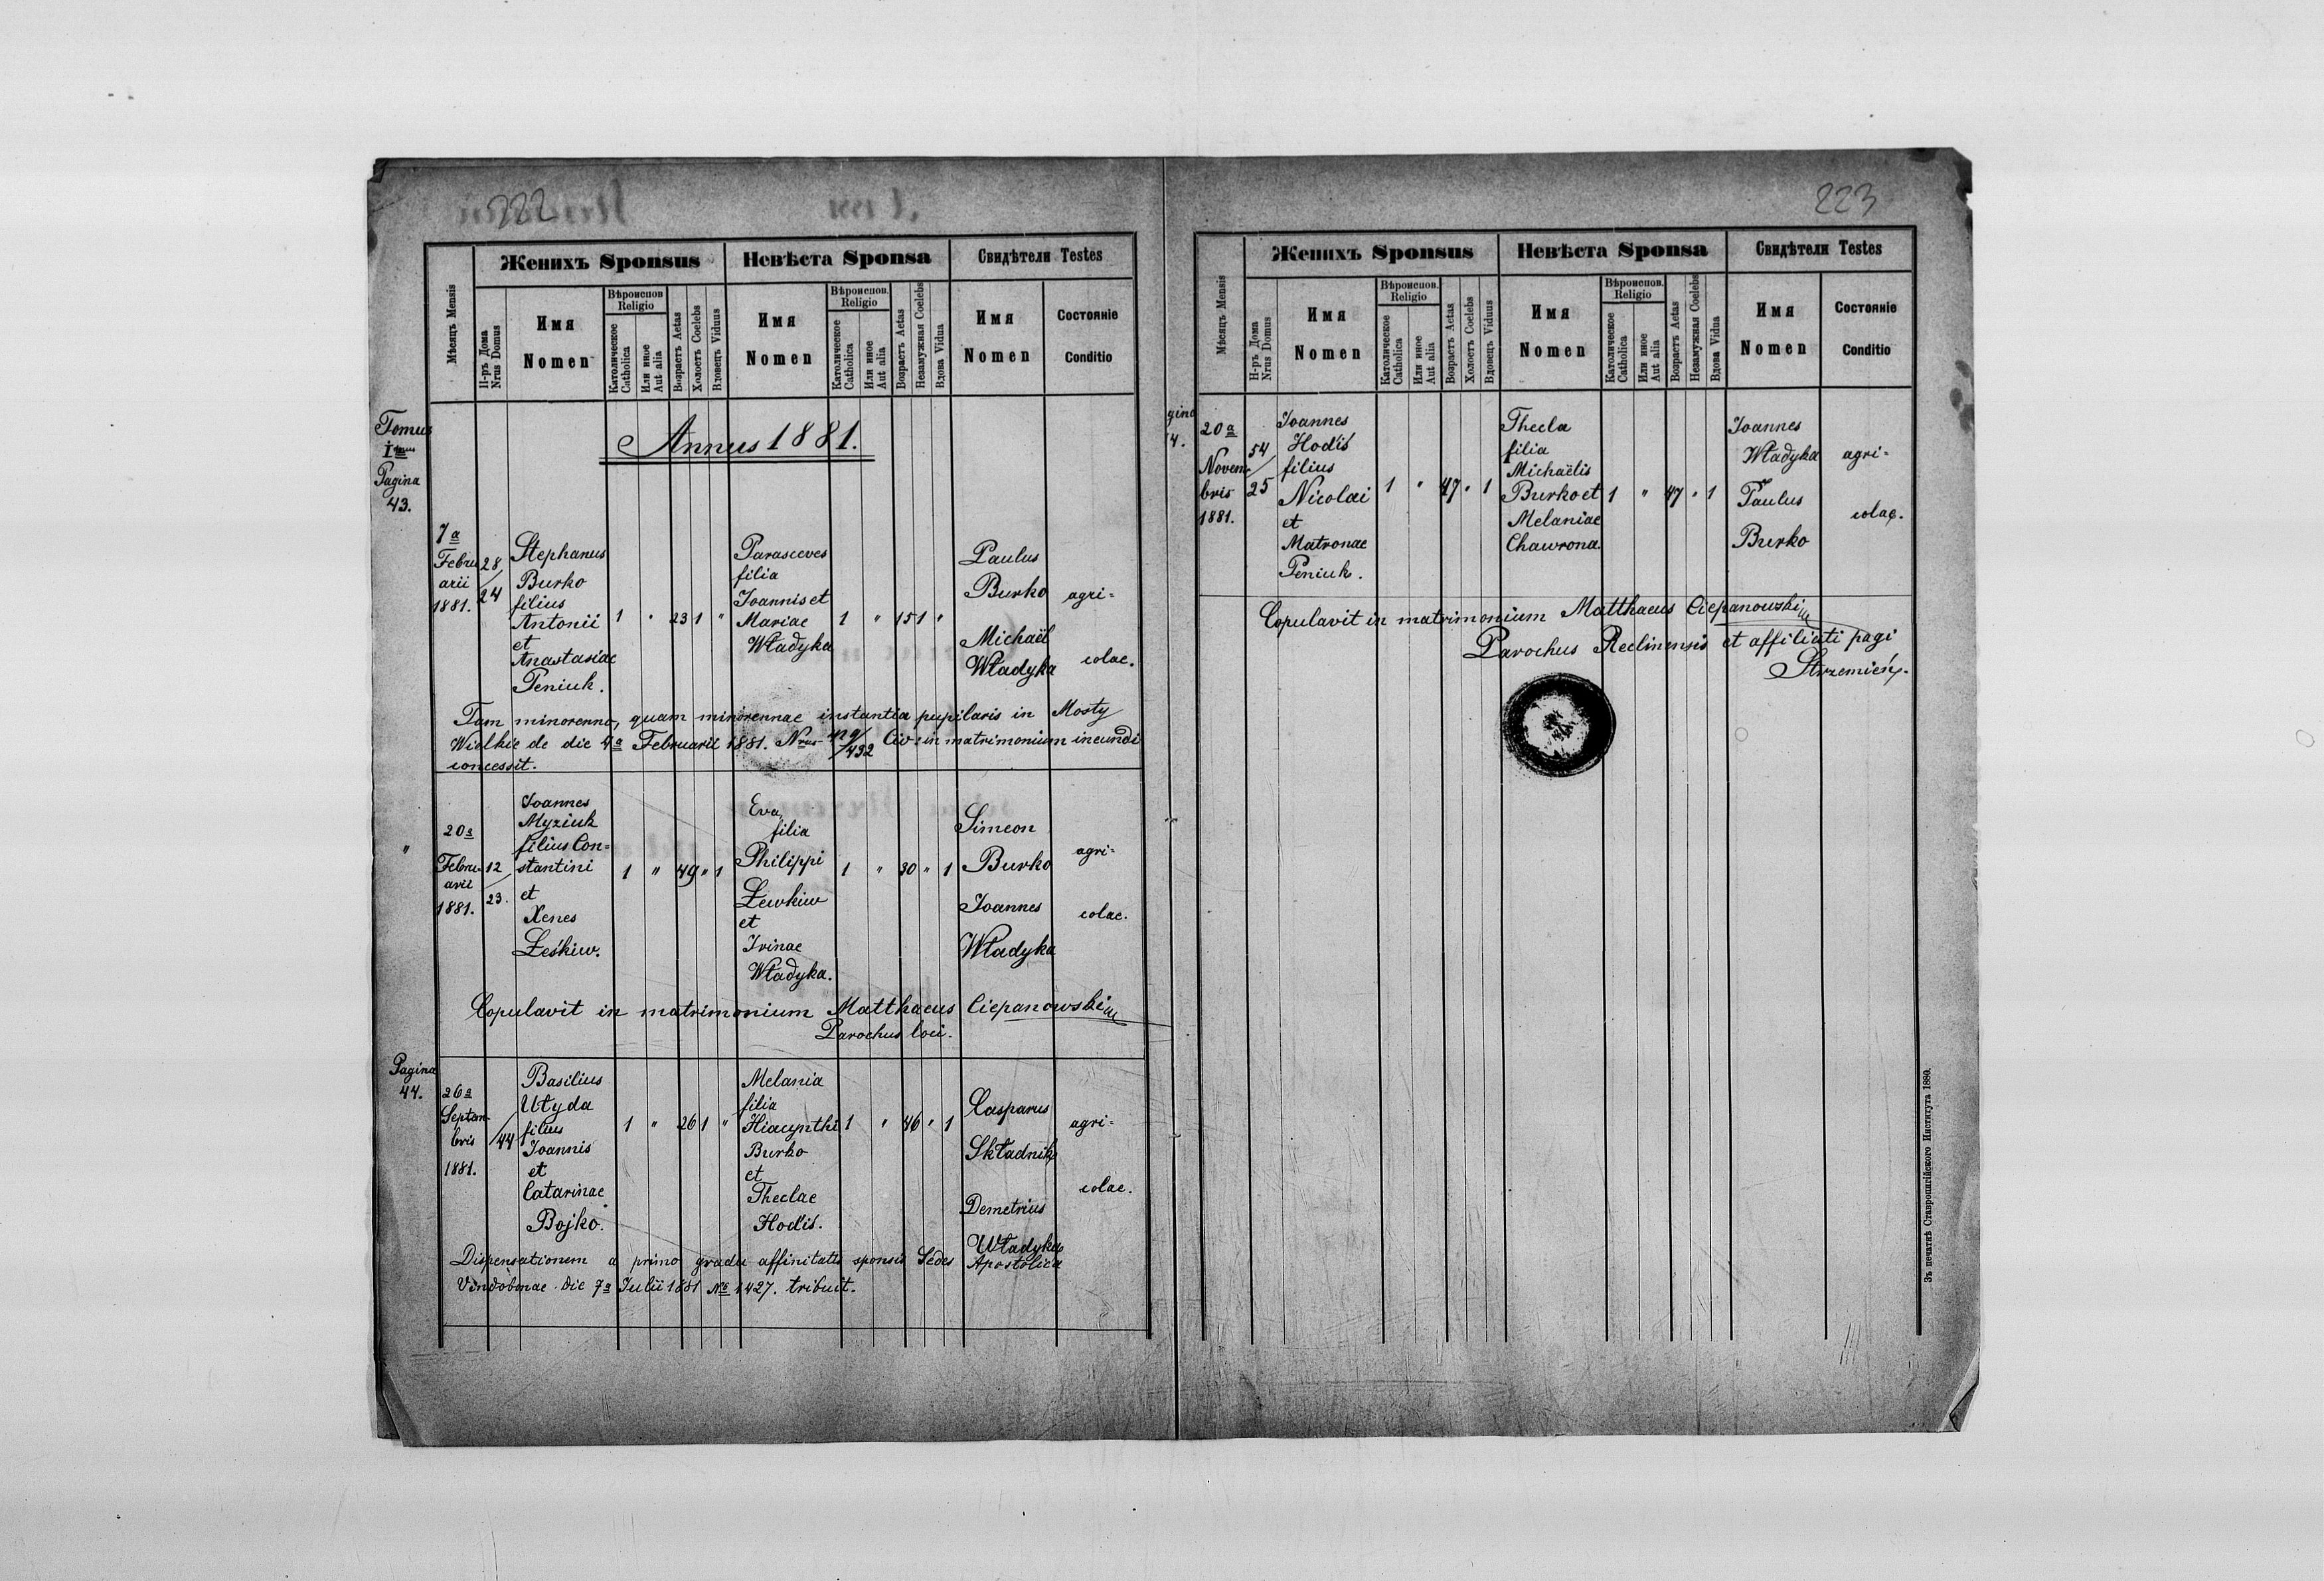 222
Женихъ Sponsus
Невѣста Sponsa
Свидѣтели Testes
Мѣсяцъ Mensis
Н-ръ Дома
Nrus Domus
Имя
Nomen
Вѣроиспов.
Religio
Католическое
Catholica
Или иное
Aut alia
Возрастъ Aetas
Холостъ Coelebs
Вдовецъ Viduus
Имя
Nomen
Вѣроиспов.
Religio
Католическое
Catholica
Или иное
Aut alia
Возрастъ Aetas
Незамужная Coelebs
Вдова Vidua
Имя
Nomen
Состояніе
Conditio
Tomus
Pagina
43.
Annus 1881.
7a
Febru
arii
1881.
28/
24
Stephanus
Burko
filius
Antonii
et
Anastasiae
Peniuk.
1 " 23 1 "
Parasceves
filia
Joannis et
Mariae
Władyka
1 " 15 1 "
Paulus
Burko
Michaël
Władyka
agri=
colae.
Tam minorenno, quam minorennae instantia pupilaris in Mosty
Wielkie de die 4a Februarii 1881. Nrus 429/432 Civ: in matrimonium ineundi
concessit.
"
20a
Febru-
arii
1881.
12/
23.
Joannes
Myziuk
filius Con=
stantini
et
Xenes
Łeśkiw.
1 " 49 " 1
Eva,
filia
Philippi
Łewkiw
et
Irinae
Władyka.
1 " 30 " 1
Simeon
Burko
Joannes
Władyka
agri=
colae.
Copulavit in matrimonium Matthaeus Ciepanowski
Parochus loci.
Pagina
44.
26a
Septem-
bris
1881.
/44
Basilius
Utyda
filius
Joannis
et
Catarinae
Bojko.
1 " 26 1 "
Melania
filia
Hiacynthi
Burko
et
Theclae
Hodis.
1 " 46 " 1
Casparus
Składnik
Demetrius
Władyka
agri=
colae.
Dispensationem a primo gradu affinitatis sponsis Sedes Apostolica
Vindobonae die 7a Julii 1881 No 1427. tribuit.
223
Женихъ Sponsus
Невѣста Sponsa
Свидѣтели Testes
Мѣсяцъ Mensis
Н-ръ Дома
Nrus Domus
Имя
Nomen
Вѣроиспов.
Religio
Католическое
Catholica
Или иное
Aut alia
Возрастъ Aetas
Холостъ Coelebs
Вдовецъ Viduus
Имя
Nomen
Вѣроиспов.
Religio
Католическое
Catholica
Или иное
Aut alia
Возрастъ Aetas
Незамужная Coelebs
Вдова Vidua
Имя
Nomen
Состояніе
Conditio
gina
4.
20a
Novem-
bris
1881.
54/
25
Joannes
Hodis
filius
Nicolai
et
Matronae
Peniuk.
1 " 47 " 1
Thecla
filia
Michaëlis
Burko et
Melaniae
Chawrona.
1 " 47 " 1
Joannes
Władyka
Paulus
Burko
agri=
colae.
Copulavit in matrimonium Matthaeus Ciepanowski
Parochus Reclinensis et affiliati pagi
Strzemień.
Зъ печатнѣ Ставропигійского Института 1880.